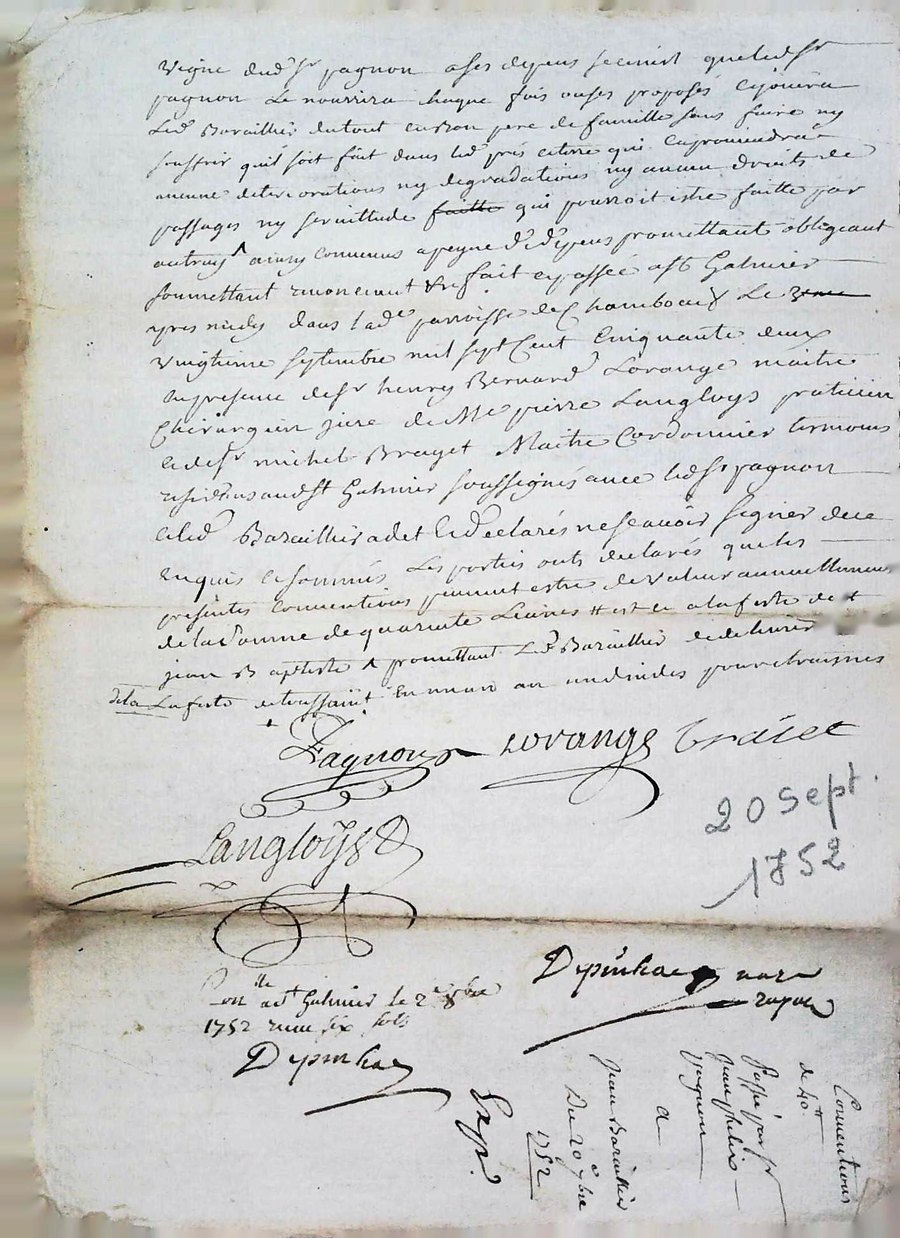 vigne dud. sr pagnon a ses depens secinit que led sr
pagnon le nourrira chaque fois ouses proposés ejouira
Led. Barailler du tout en bon pere de famille sans faire ny
souffrir qu'il soit fait dans led. prés et terre qui
aucune deteriorations ny degradations ny aucun droits de
passages ny servittude faitte qui pourroit estre faitte par
autruy ainsy convenus a peyne de d. depens promettant obligeant
soumettant renoncant &re fait et passée a st Galmier
dans lad. parroisse de Chambœuf Le
vingtieme septembre mil sept cent cinquante deux
en presence de sr henry Bernard Lorange maitre
Chirurgien juré de Me pierre Langloys praticien
et de sr michel Brayet Maitre Cordonnier temoins
residents aud. st Galmier soussignés avec led sr pagnon
et led Barailler a det et declarés ne scavoir signer de ce
enquis et sommés Les parties onts declarés que les
presentes conventions peuvent estre de valeur annuellement
de la somme de quarante Livres # est et a la feste de st
jean Baptiste & promettant Led. Barailler de delivrer
de la La feste de toussaint en un an un dindes pour etraines
Pagnon Lorange Braiet
20 Sept.
1752
Langloys
Depinhac nore
royal
Conlle a st Galmier le 2e 8bre
1752 reçu six sols
Depinhac
Conventions
de 40 tt
Passé par sr
Jean
pagnon
a
Jean Barailler
Du 20e 7bre
1752
Exp.